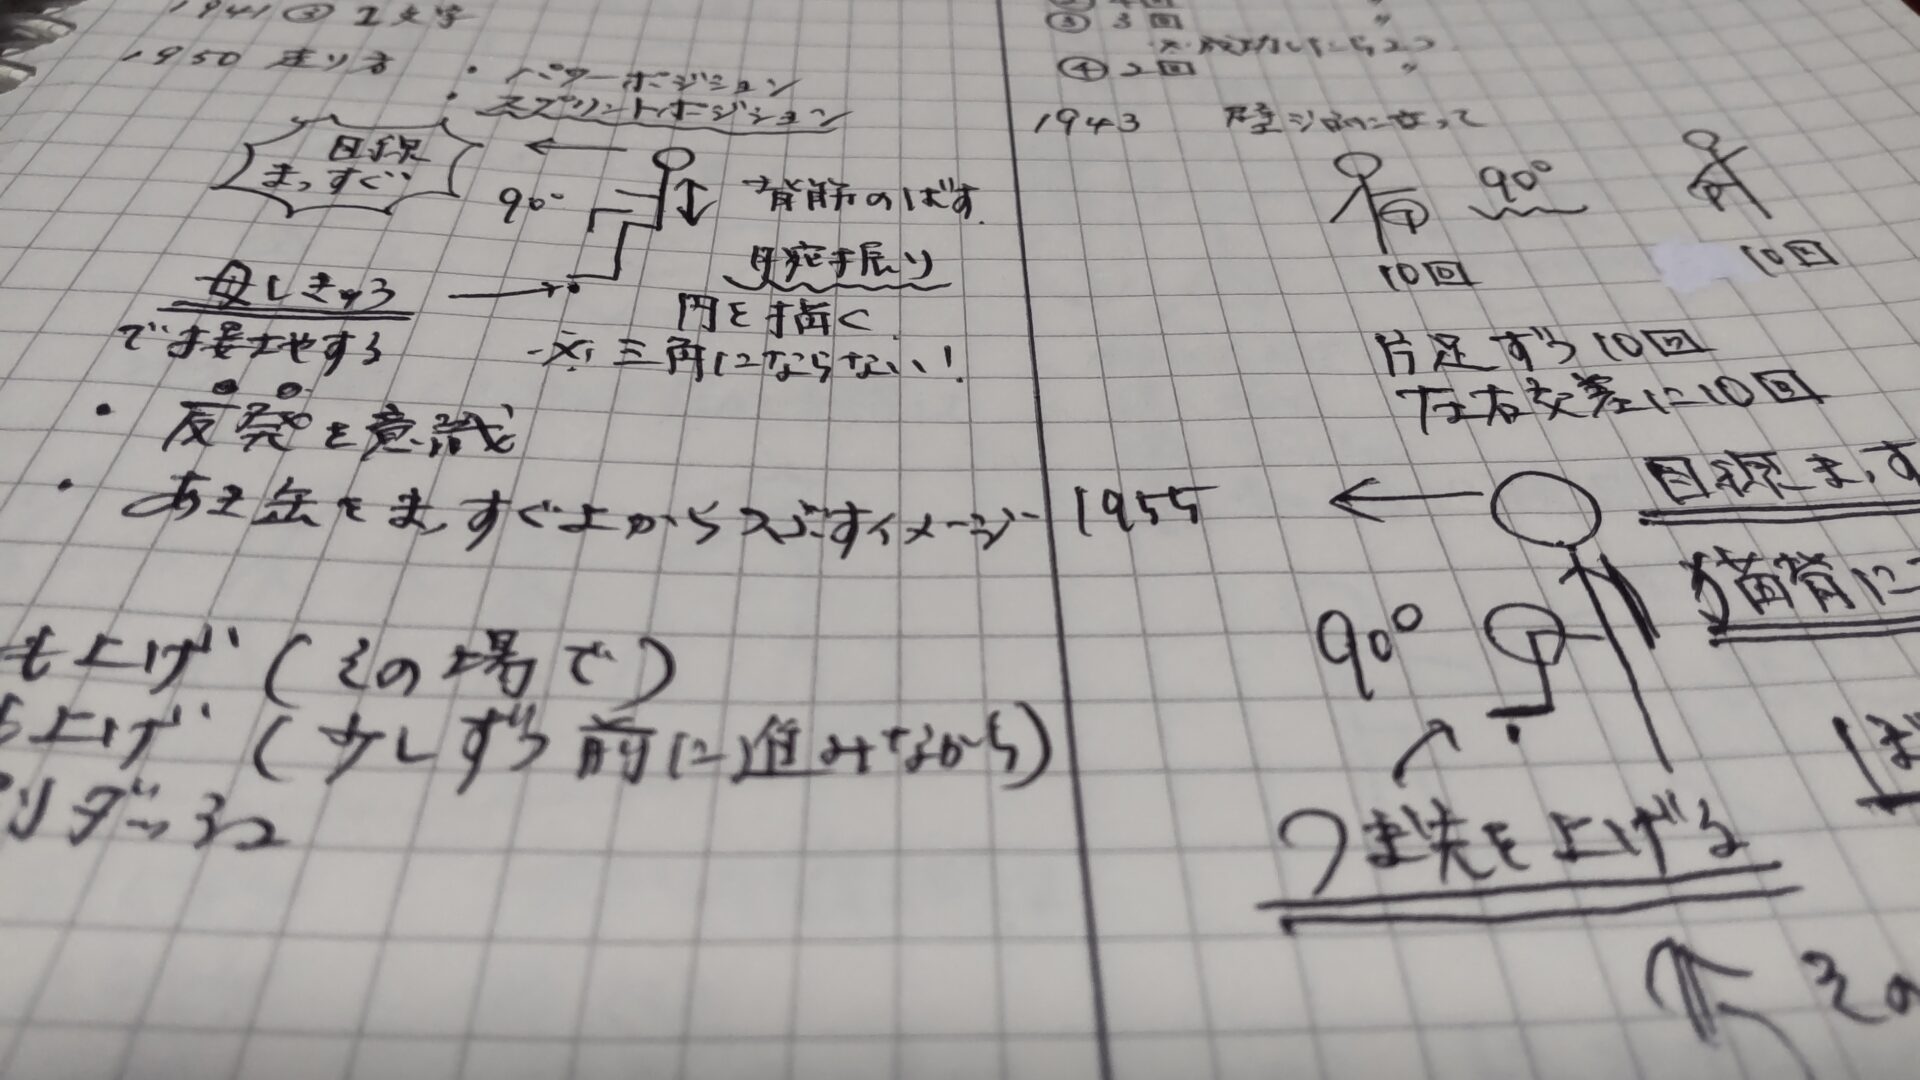 1950 走り方
・パワーポジション
・スプリントポジション
目線
まっすぐ
90°
背筋のばす
腕振り
円を描く
※三角にならない!
母しきゅう
で接地する
・反発を意識
・あき缶をまっすぐ上からつぶすイメージ
も上げ(その場で)
も上げ(少しずつ前に進みながら)
③3回 〃
④2回 〃
1943 壁
90°
10回
10回
片足ずつ10回
左右交差に10回
1955
目線まっす
猫背に
90°
つま先を上げる
その